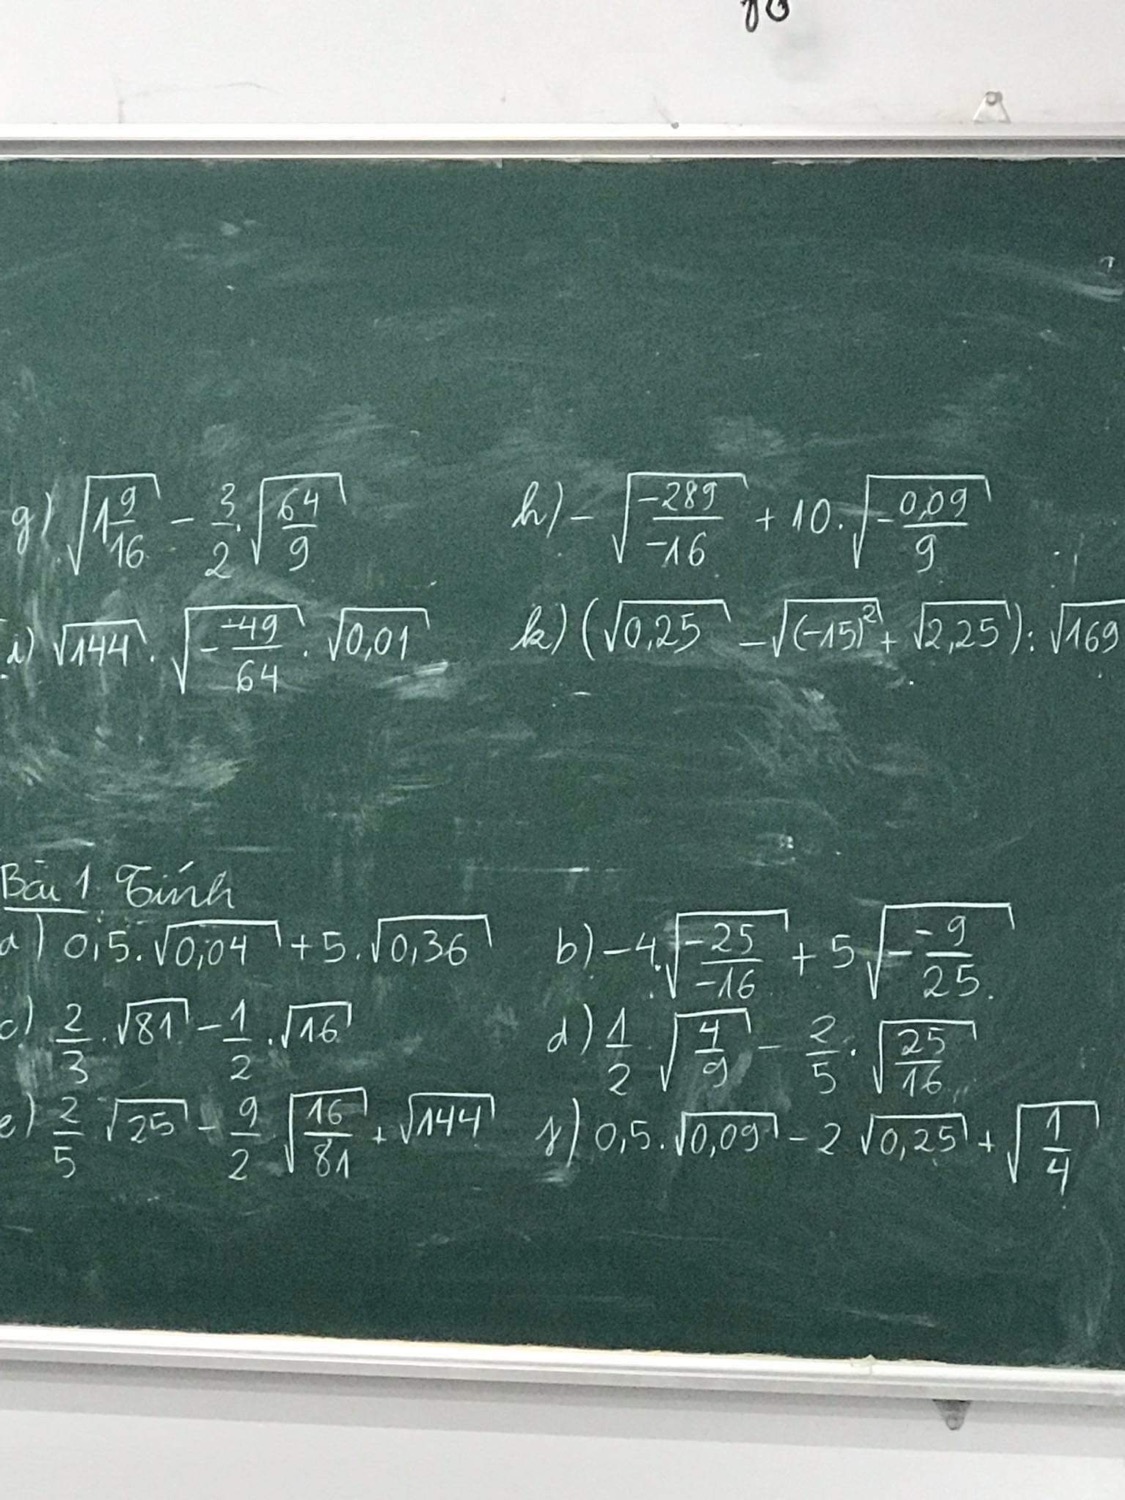 g) √(1 9/16) - 3/2 . √(64/9) h) - √(-289/-16) + 10. √(- 0,09/9)
i) √144 . √(- -49/64) . √0,01 k) (√0,25 - √(-15)² + √2,25) : √169
Bài 1: Tính
a) 0,5. √0,04 + 5. √0,36 b) -4. √(-25/-16) + 5 √(- -9/25)
c) 2/3 . √81 - 1/2 . √16 d) 1/2 . √(4/9) - 2/5 . √(25/16)
e) 2/5 √25 - 9/2 √(16/81) + √144 f) 0,5. √0,09 - 2 √0,25 + √(1/4)